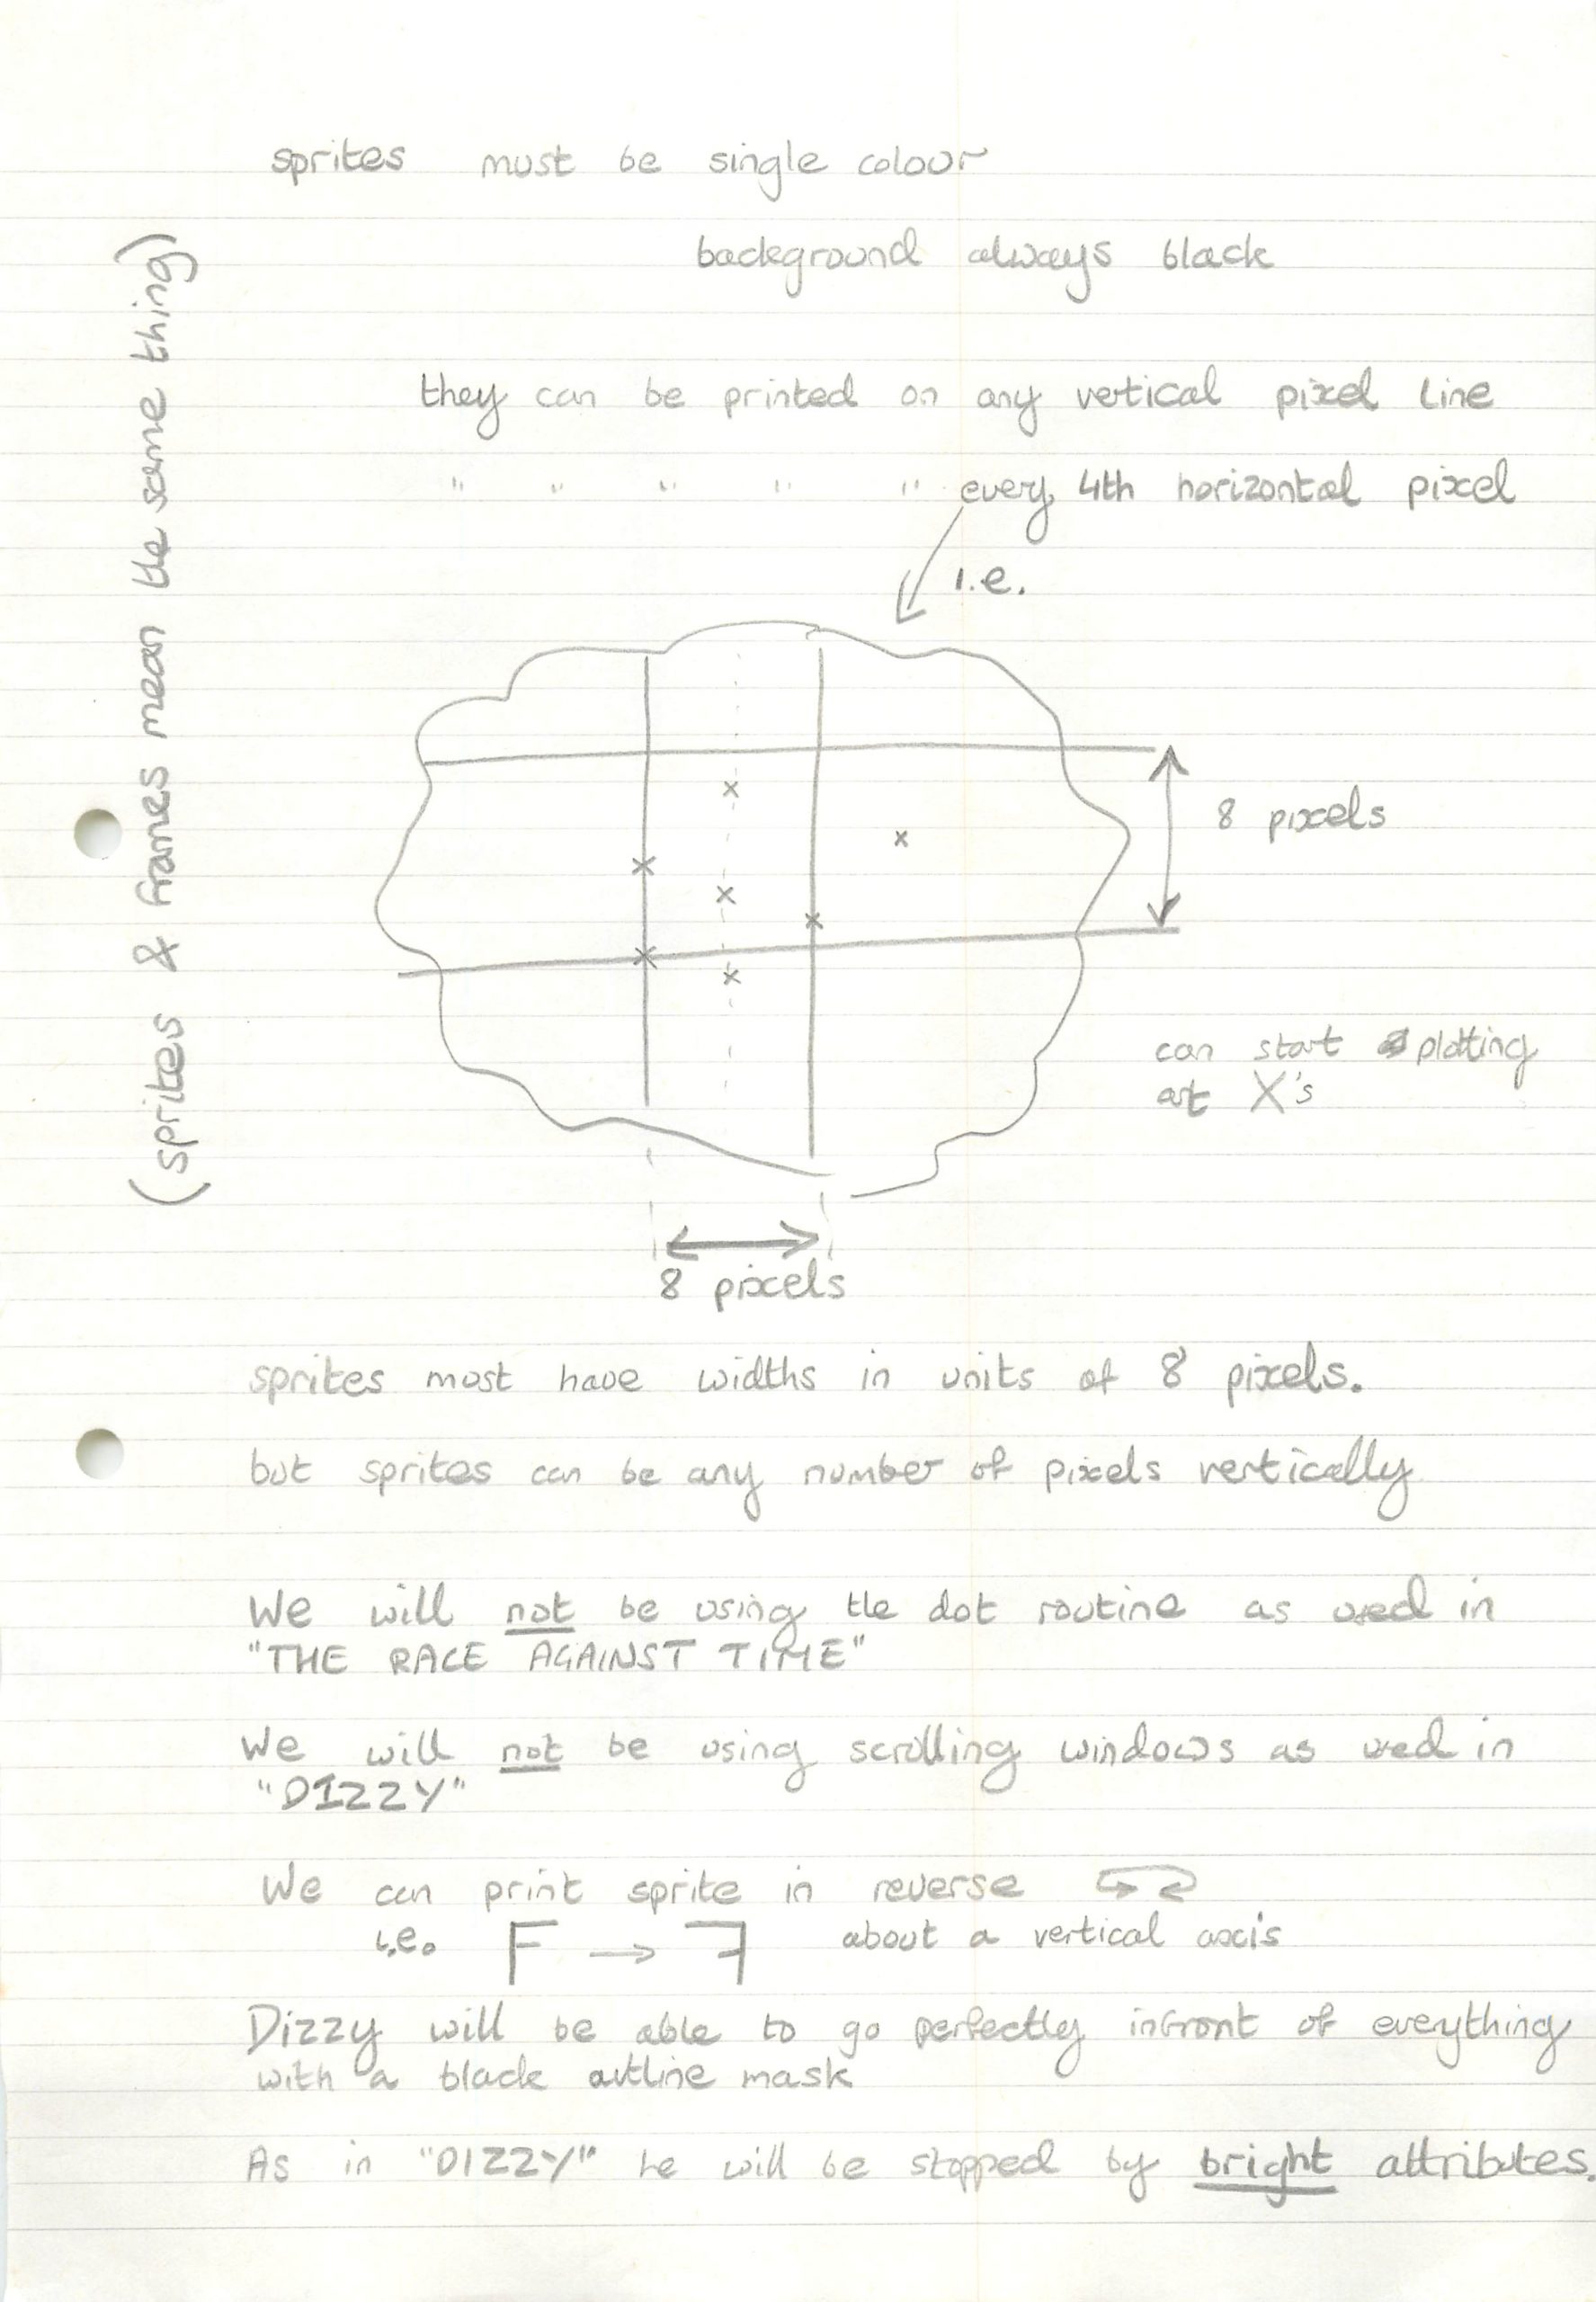 sprites must be single colour
background always black
(sprites & frames mean the same thing)
they can be printed on any vertical pixel line
" " " " " every 4th horizontal pixel
i.e.
8 pixels
can start plotting
at X's
8 pixels
sprites must have widths in units of 8 pixels.
but sprites can be any number of pixels vertically
We will not be using the dot routine as used in
"THE RACE AGAINST TIME"
We will not be using scrolling windows as used in
"DIZZY"
We can print sprite in reverse
i.e. F → ꟻ about a vertical axis
Dizzy will be able to go perfectly infront of everything
with a black outline mask
As in "DIZZY" he will be stopped by bright attributes.